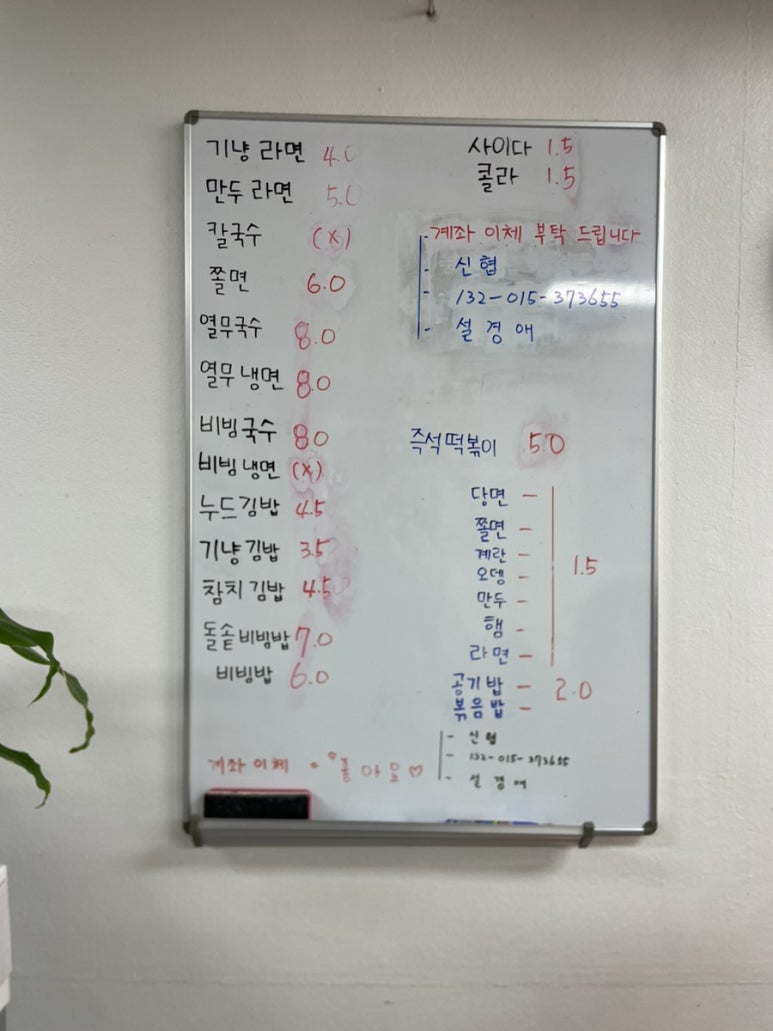 기냥 라면 4.0
만두 라면 5.0
칼국수 (x)
쫄면 6.0
열무국수 8.0
열무 냉면 8.0
비빙국수 8.0
비빙냉면 (x)
누드김밥 4.5
기냥김밥 3.5
참치김밥 4.5
돌솥비빙밥 7.0
비빙밥 6.0
계좌 이체 = 좋아요♡
사이다 1.5
콜라 1.5
- 계좌 이체 부탁 드립니다
- 신협
- 132-015-373655
- 설경애
즉석떡볶이 5.0
당면 -
쫄면 -
계란 -
오뎅 - 1.5
만두 -
햄 -
라면 -
공기밥 - 2.0
볶음밥 -
- 신협
- 132-015-373655
- 설경애